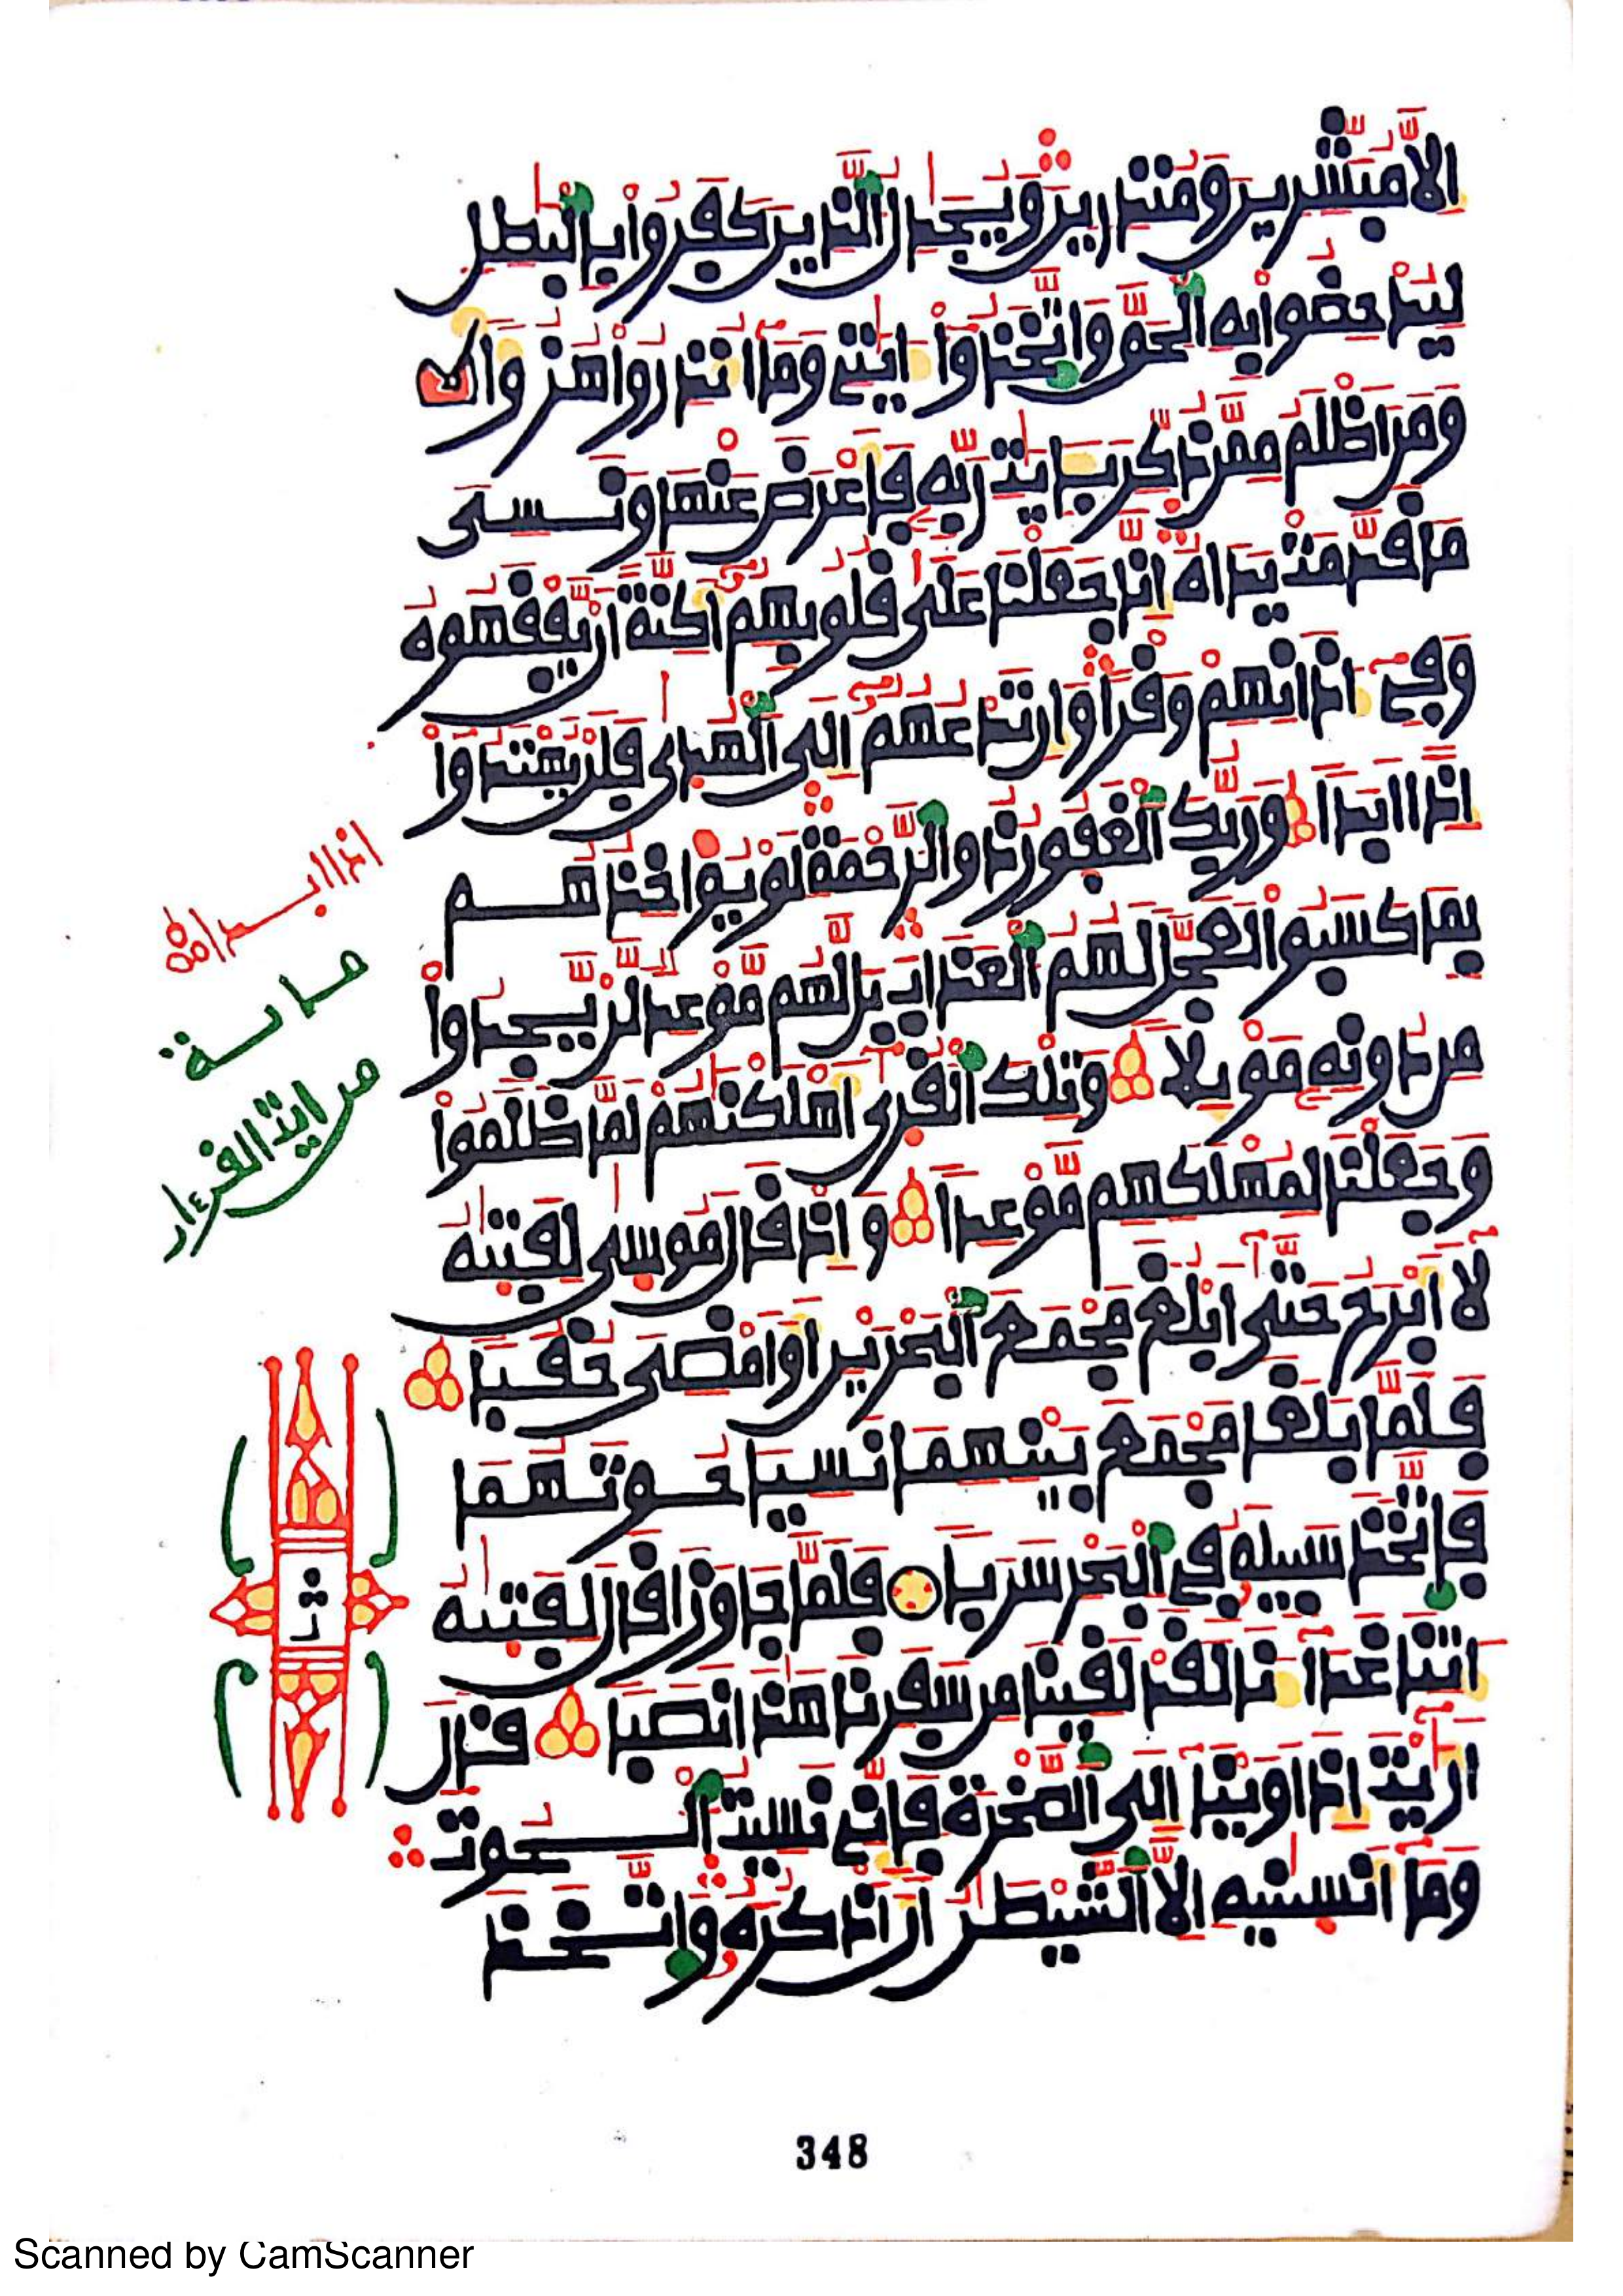 الا مبشرين ومنذرين ويجدل الذين كفروا بالبطل
ليدحضوا به الحق واتخذوا ايتى وما انذروا هزوا
ومن اظلم ممن ذكر بايت ربه فاعرض عنها ونسى
ما قدمت يداه انا جعلنا على قلوبهم اكنة ان يفقهوه
وفى اذانهم وقرا وان تدعهم الى الهدى فلن يهتدوا
اذا ابدا وربك الغفور ذو الرحمة لو يواخذهم
بما كسبوا لعجل لهم العذاب بل لهم موعد لن يجدوا
من دونه مويلا وتلك القرى اهلكنهم لما ظلموا
وجعلنا لمهلكهم موعدا واذ قال موسى لفتيه
لا ابرح حتى ابلغ مجمع البحرين او امضى حقبا
فلما بلغا مجمع بينهما نسيا حوتهما
فاتخذ سبيله فى البحر سربا فلما جاوزا قال لفتيه
اتنا غدانا لقد لقينا من سفرنا هذا نصبا قال
اريت اذ اوينا الى الصخرة فانى نسيت الحوت
وما انسنيه الا الشيطن ان اذكره واتخذ
اذا ابدا
ماية
من اية القرءان
ث
348
Scanned by CamScanner